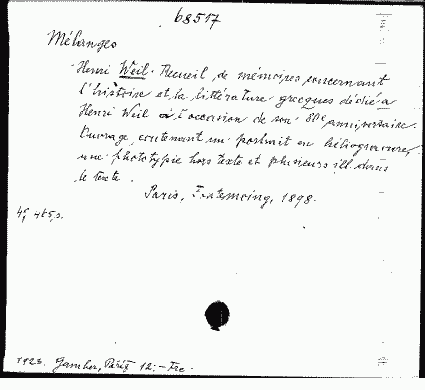 68517
Mélanges
Henri Weil. Recueil de mémoires concernant
l'histoire et la littérature grecques dédié a
Henri Weil à l'occasion de son 80e anniversaire.
Ouvrage contenant un portrait en héliogravure,
une phototypie hors texte et plusieurs ill. dans
le texte.
Paris, Fontemoing, 1898.
4°, 465 s.
1923. Gamber, Paris 12.- Frc.